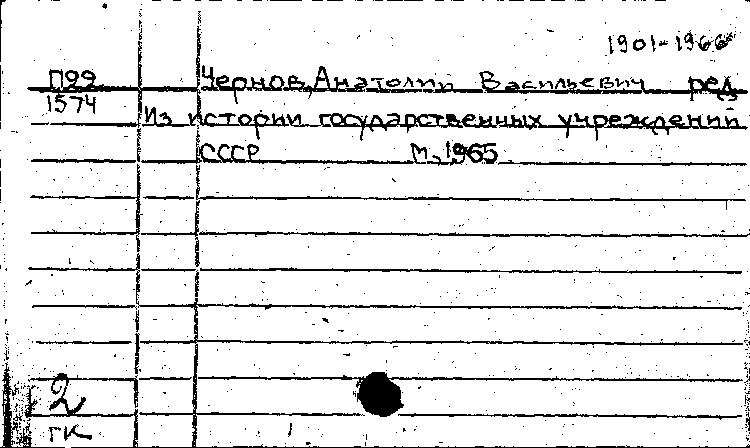 1901-1966
П99 Чернов, Анатолий Васильевич ред.
1574 Из истории государственных учреждений
СССР М., 1965
2
ГК